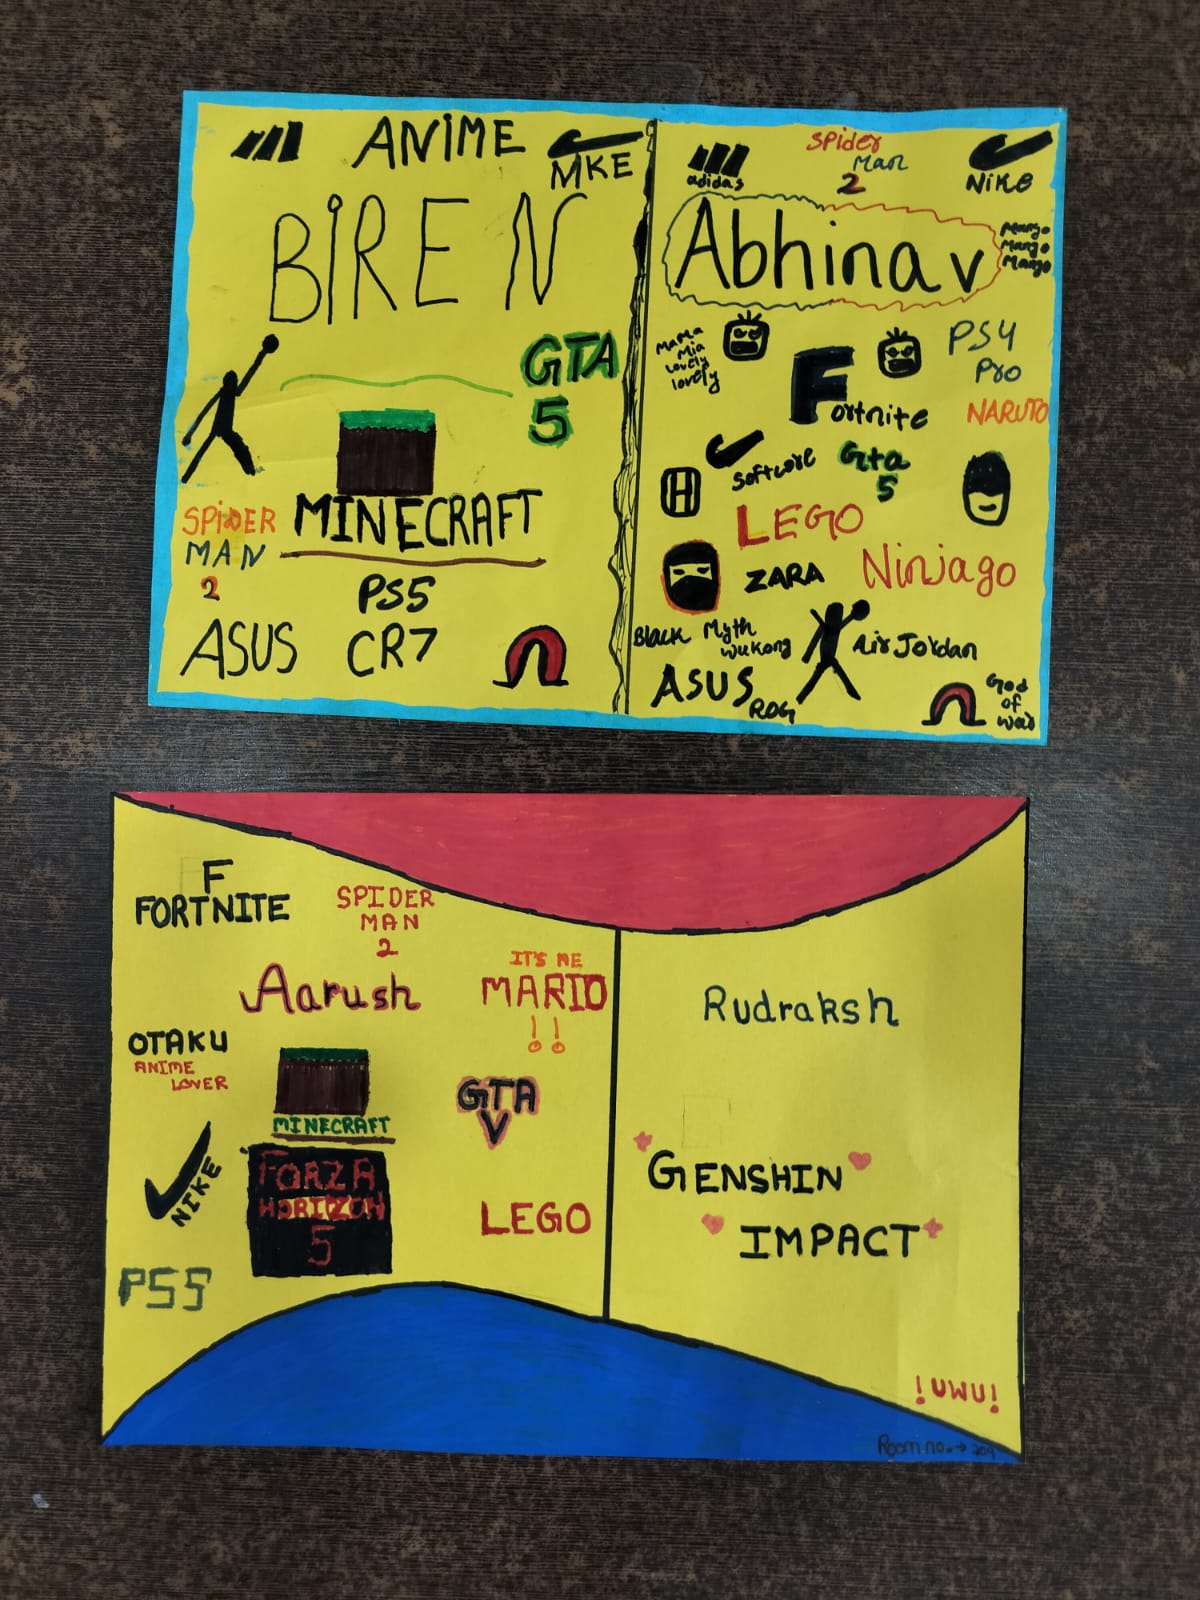 ANIME
MKE
BIREN
GTA
5
MINECRAFT
SPiDER
MAN
2
PS5
ASUS
CR7
adidas
Spider
Man
2
NiKe
Abhinav
Mango
Mango
Mango
MaMa
Mia
Lovely
lovely
Fortnite
PS4
Pro
NARUTO
H
Softcore
Gta
5
LEGO
ZARA
Ninjago
Black Myth
Wukong
Air Jordan
ASUS
ROG
God
of
War
F
FORTNITE
SPIDER
MAN
2
IT'S ME
MARIO
!!
Aarush
OTAKU
ANIME
LOVER
MINECRAFT
GTA
V
NIKE
FORZA
HORIZON
5
LEGO
PS5
Rudraksh
GENSHIN
IMPACT
!UWU!
Room no.→ 209